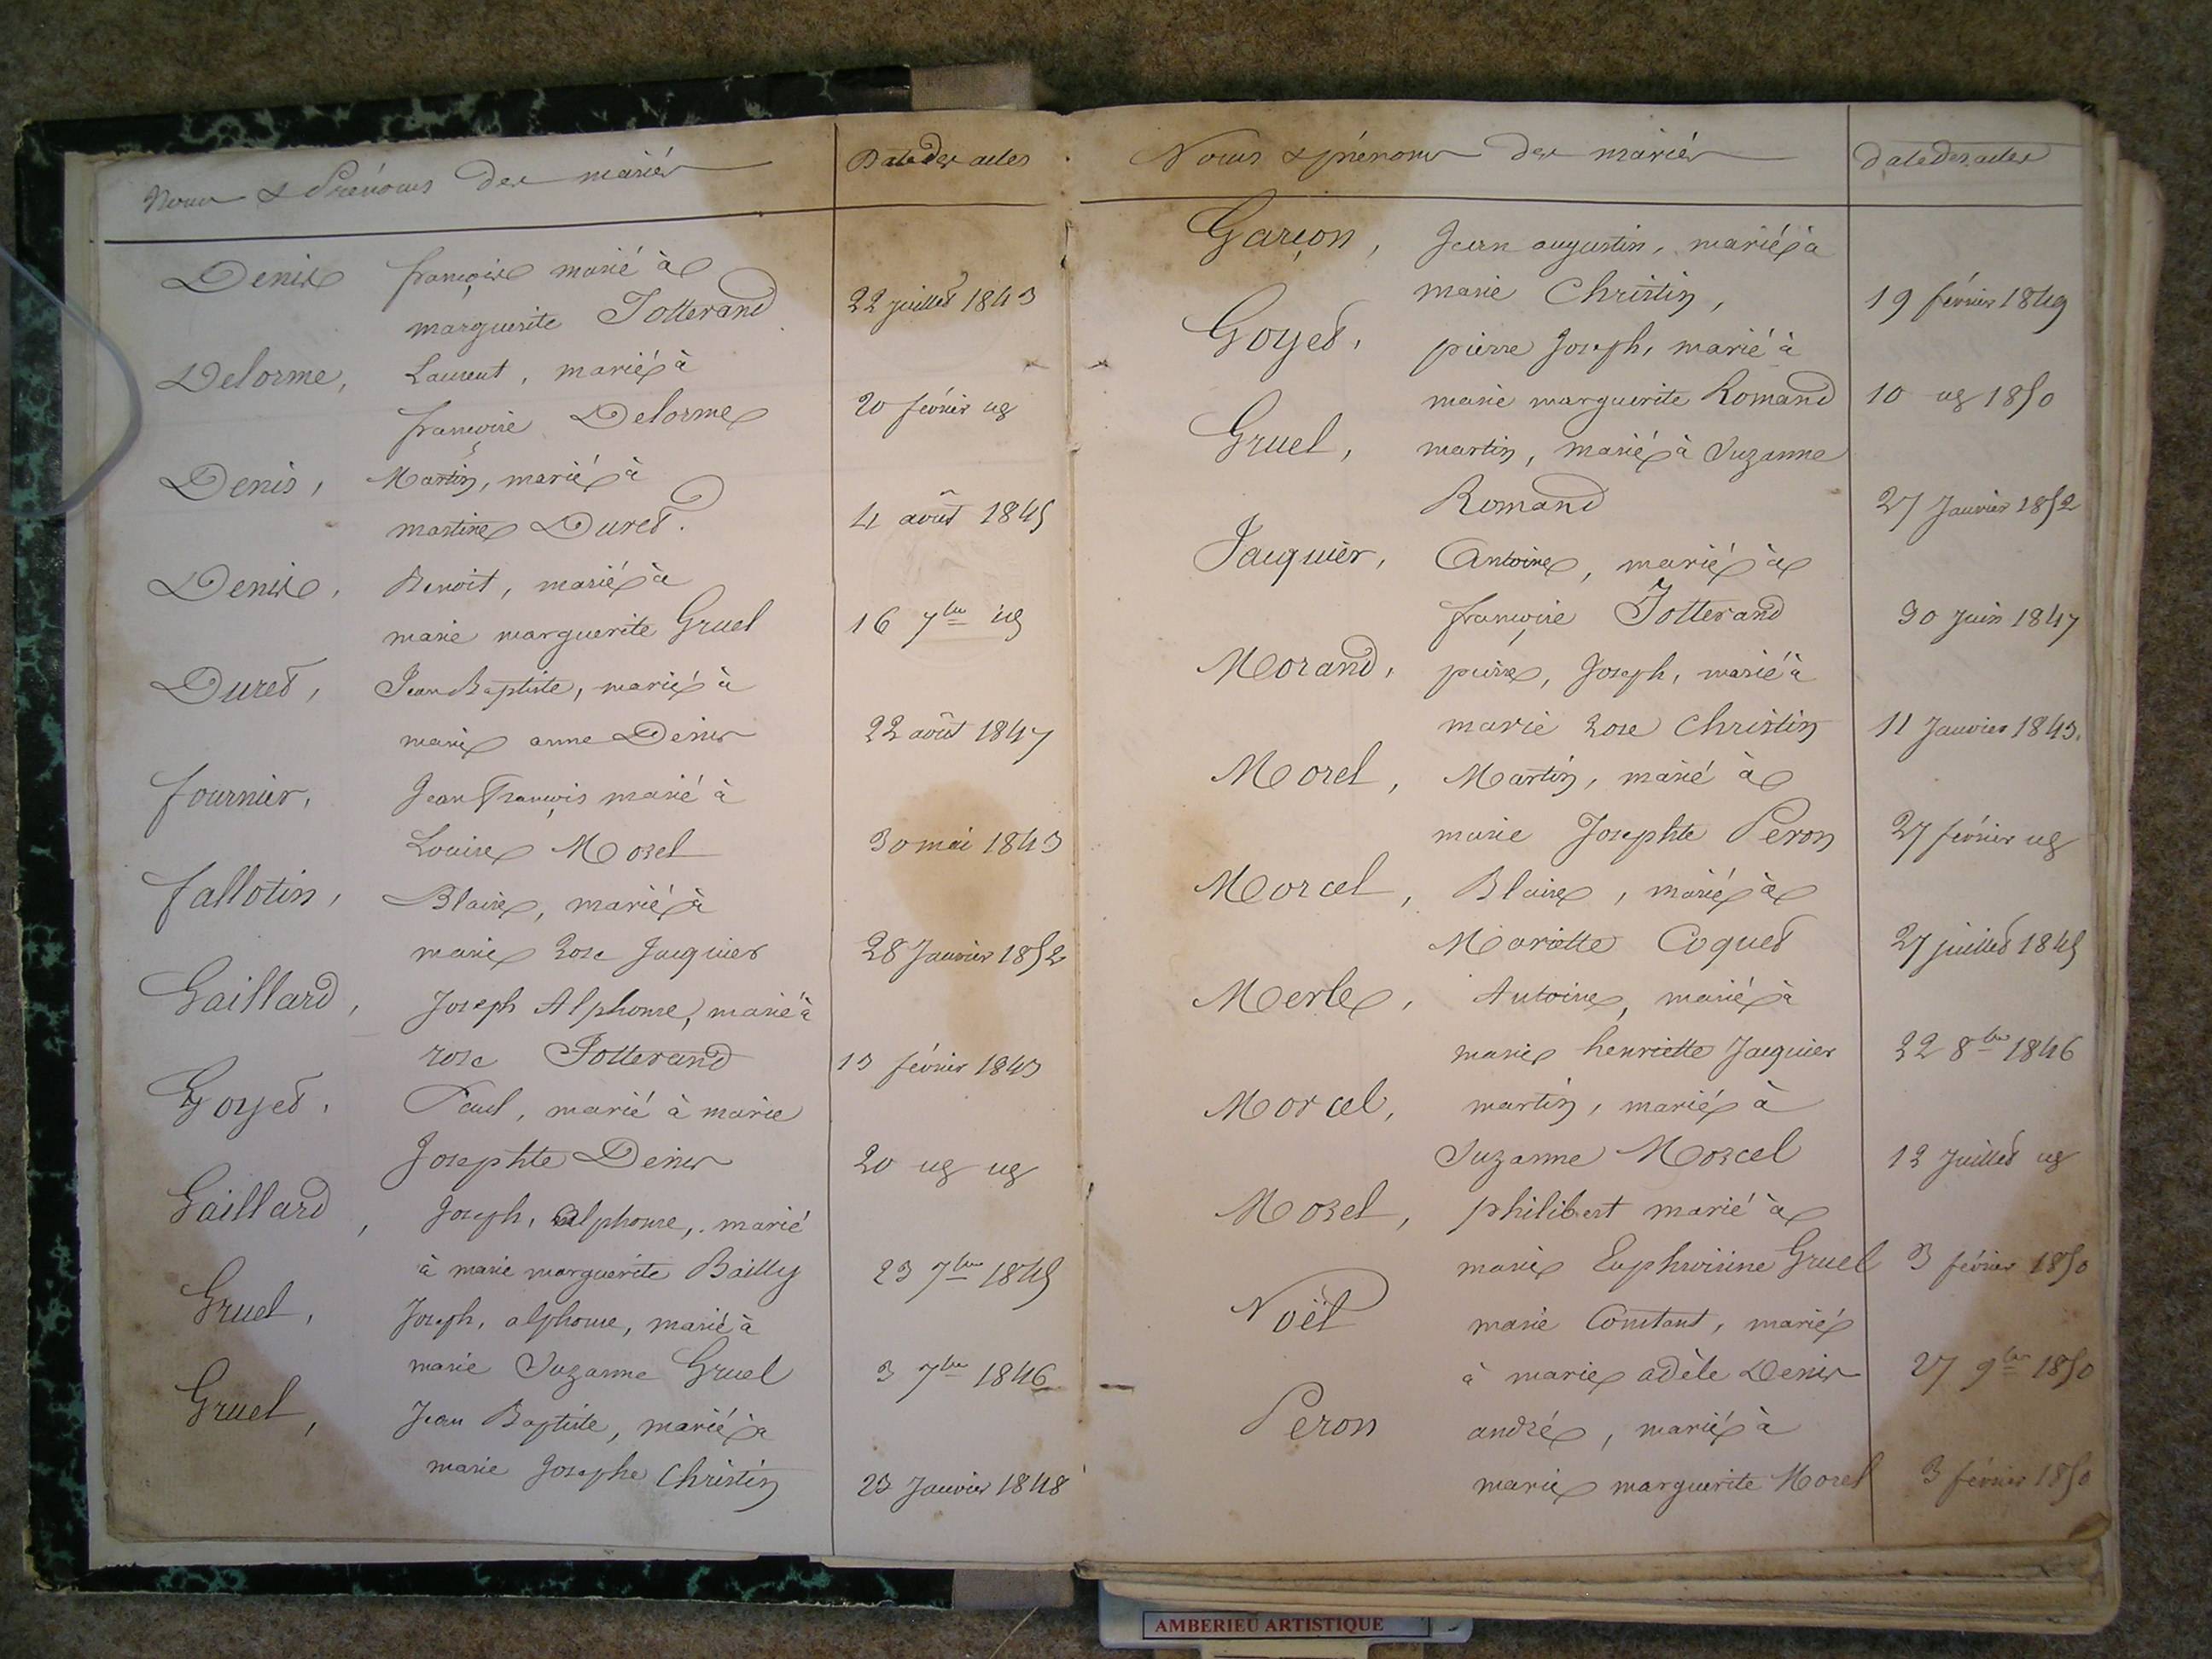 Noms & Prénoms des mariés
Date des actes
Denis françois marié à
marguerite Jotterand 22 juillet 1843
Delorme, Laurent, marié à
françoise Delorme 20 février ug
Denis, Martin, marié à
martine Duret. 4 août 1845
Denis, Benoit, marié à
marie marguerite Gruel 16 7bre ug
Duret, Jean Baptiste, marié à
marie anne Denis 22 août 1847
fournier, Jean François marié à
Louise Morel 30 mai 1843
fallotin, Blaise, marié à
marie Rose Jacquier 28 Janvier 1852
Gaillard, Joseph Alphonse, marié à
rose Jotterand 13 février 1843
Goyet, Paul, marié à marie
Josephte Denis 20 ug ug
Gaillard, Joseph, alphonse, marié
à marie marguerite Bailly 23 7bre 1845
Gruel, Joseph, alphonse, marié à
marie Suzanne Gruel 3 7bre 1846
Gruel, Jean Baptiste, marié à
marie Josephe Christin 23 Janvier 1848
Noms & prénoms des mariés
date des actes
Garçon, Jean augustin, marié à
marie Christin, 19 février 1849
Goyet, pierre Joseph, marié à
marie marguerite Romand 10 ug 1850
Gruel, martin, marié à Suzanne
Romand 27 Janvier 1852
Jacquier, Antoine, marié à
françoise Jotterand 30 Juin 1847
Morand, pierre, Joseph, marié à
marie Rose Christin 11 Janvier 1843.
Morel, Martin, marié à
marie Josephte Peron 27 février ug
Morcel, Blaise, marié à
Mariette Coquet 27 juillet 1845
Merle, Antoine, marié à
marie henriette Jacquier 22 8bre 1846
Morcel, martin, marié à
Suzanne Morcel 13 Juillet ug
Morel, philibert marié à
marie Euphroisine Gruel 3 février 1850
Noël marie Constant, marié
à marie adèle Denis 27 9bre 1850
Peron andré, marié à
marie marguerite Morel 3 février 1850
AMBERIEU ARTISTIQUE